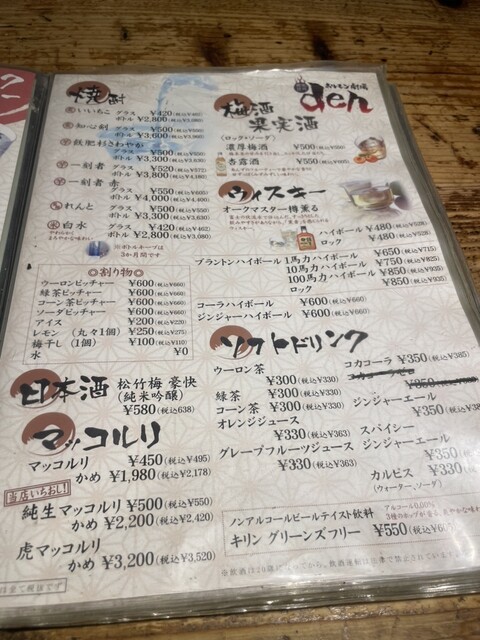 焼酎
麦 いいちこ グラス ¥420(税込¥462)
ボトル ¥2,800(税込¥3,080)
麦 知心剣 グラス ¥500(税込¥550)
ボトル ¥3,600(税込¥3,960)
芋 飫肥杉さわやか グラス ¥500(税込¥550)
ボトル ¥3,300(税込¥3,630)
芋 一刻者 グラス ¥520(税込¥572)
ボトル ¥3,800(税込¥4,180)
芋 一刻者 赤 グラス ¥550(税込¥605)
ボトル ¥4,000(税込¥4,400)
れんと グラス ¥500(税込¥550)
ボトル ¥3,300(税込¥3,630)
米 白水 グラス ¥420(税込¥462)
ボトル ¥2,800(税込¥3,080)
やわらかくまろやかな味わい
※ボトルキープは
3か月間です
◎割り物◎
ウーロンピッチャー ¥600(税込¥660)
緑茶ピッチャー ¥600(税込¥660)
コーン茶ピッチャー ¥600(税込¥660)
ソーダピッチャー ¥600(税込¥660)
アイス ¥200(税込¥220)
レモン(丸々1個) ¥250(税込¥275)
梅干し(1個) ¥100(税込¥110)
水 ¥0
日本酒
松竹梅 豪快
(純米吟醸)
¥580(税込638)
マッコルリ
マッコルリ ¥450(税込¥495)
かめ ¥1,980(税込¥2,178)
当店いちおし!
純生マッコルリ ¥500(税込¥550)
かめ ¥2,200(税込¥2,420)
虎マッコルリ
かめ ¥3,200(税込¥3,520)
は全て税抜です
ホルモン劇場
den
梅酒
果実酒
(ロック・ソーダ)
濃厚梅酒 ¥500(税込¥550)
杏露酒 ¥550(税込¥605)
ウィスキー
オークマスター樽薫る
ハイボール ¥480(税込¥528)
ロック ¥480(税込¥528)
ブラントンハイボール 1馬力ハイボール ¥650(税込¥715)
10馬力ハイボール ¥750(税込¥825)
100馬力ハイボール ¥850(税込¥935)
ロック ¥850(税込¥935)
コーラハイボール ¥600(税込¥660)
ジンジャーハイボール ¥600(税込¥660)
ソフトドリンク
ウーロン茶
¥300(税込¥330)
緑茶 ¥300(税込¥330)
コーン茶 ¥300(税込¥330)
オレンジジュース
¥330(税込¥363)
グレープフルーツジュース
¥330(税込¥363)
コカコーラ ¥350(税込¥385)
ジンジャーエール
¥350(税込¥38
スパイシー
ジンジャーエール
¥350(税込
カルピス ¥330(税込
(ウォーター、ソーダ)
ノンアルコールビールテイスト飲料
アルコール0.00%
キリン グリーンズフリー ¥550(税込¥60
※飲酒は20歳になってから。飲酒運転は法律で禁止されています。